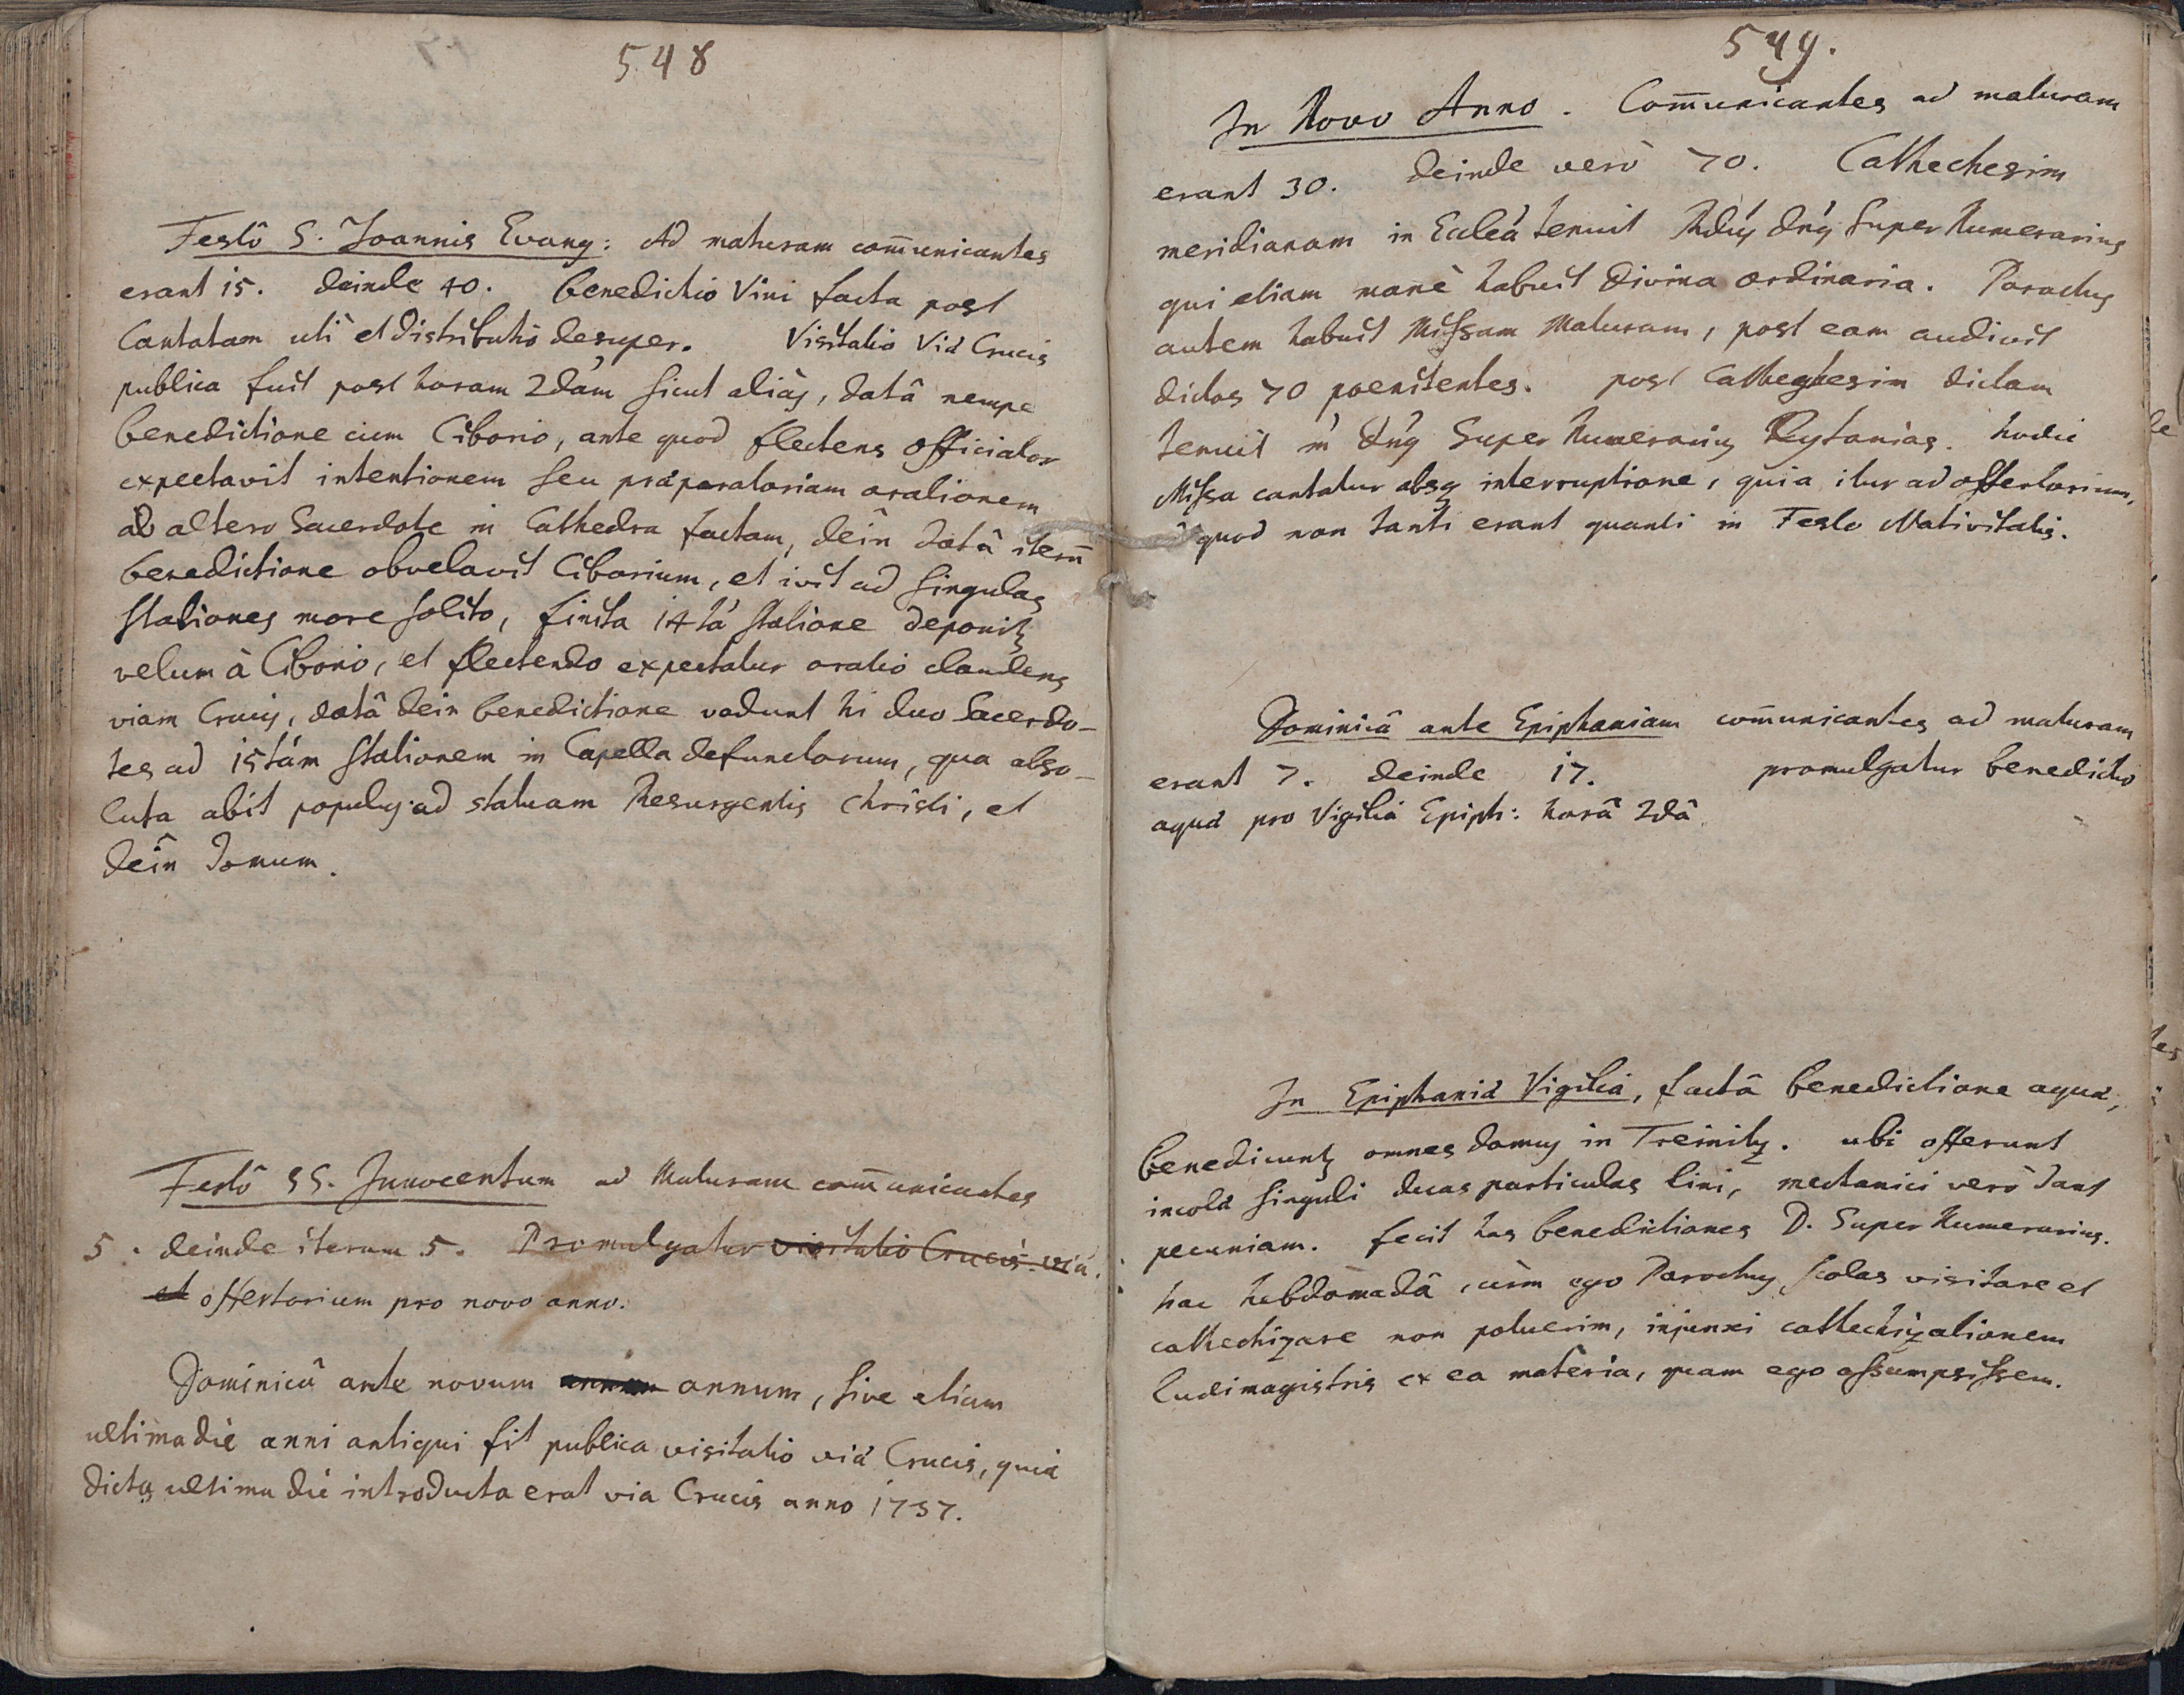 548
Festô S. Joannis Evang: Ad maturam com̄unicantes
erant 15. deinde 40. benedictio Vini facta post
Cantatam uti et distributio desuper. Visitatio Viæ Crucis
publica fuit post horam 2dam sicut aliàs, datâ nempe
benedictione cum Ciborio, ante quod flectens officiator
expectavit intentionem seu præparatoriam orationem
ab altero Sacerdote in Cathedra factam, dein datâ iterū
benedictione obvelavit Ciborium, et ivit ad singulas
stationes more solito, finita 14tâ statione deponitʒ
velum à Ciborio, et flectendo expectatur oratio claudens
viam Crucis, datâ dein benedictione vadunt hi duo Sacerdo-
tes ad 15tám stationem in Capella defunctorum, qua abso-
luta abit populus ad statuam Resurgentis Christi, et
deîn domum.
Festô SS. Innocentum ad Maturam com̄unicantes
5. deinde iterum 5. Promulgatur visitatio Crucis viæ.
et offertorium pro novo anno.
Dominicâ ante novum annum annum, sive etiam
ultima die anni antiqui fit publica visitatio viæ Crucis, quia
dicta ultima die introducta erat via Crucis anno 1757.
549.
In Novo Anno. Com̄unicantes ad maturam
erant 30. deinde verò 70. Cathechesim
meridianam in Ecl̄eâ tenuit Rdus dn̄s Super Numerarius
qui etiam manè habuit divina ordinaria. Parochus
autem habuit Missam Maturam, post eam audivit
dictos 70 poenitentes. post Catheghesim dictam
tenuit dn̄s Super Numerarius Lytanias. hodie
Missa cantatur absqʒ interruptione, quia itur ad offertorium,
quod non tanti erant quanti in Festo Nativitatis.
Dominicâ ante Epiphaniam com̄unicantes ad maturam
erant 7. deinde 17. promulgatur benedictio
aquæ pro Vigiliâ Epiph: horâ 2dâ
In Epiphaniæ Vigiliâ, factâ benedictione aquæ,
benedicuntʒ omnes domus in Treinitz. ubi offerunt
incolæ singuli duas particulas lini, mechanici verò dant
pecuniam. fecit has benedictiones D. Super Numerarius.
hac hebdomadâ, cùm ego Parochus scolas visitare et
cathechizare non potuerim, injunxi cathechizationem
ludimagistris ex ea materia, quam ego assumpsissem.